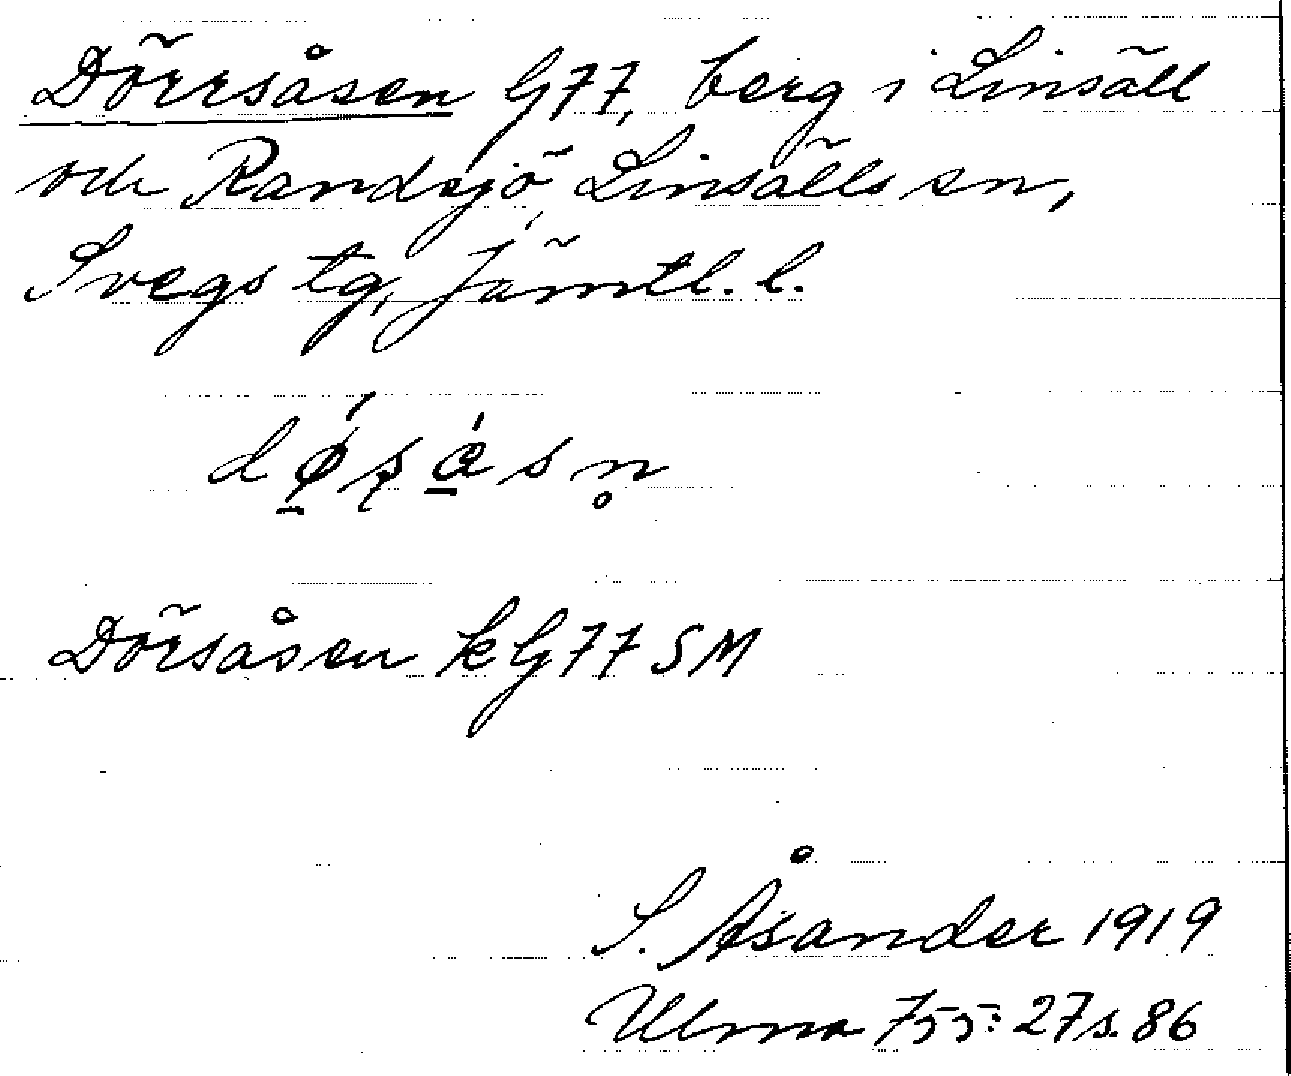 Dörrsåsen G77, berg i Linsäll
och Randsjö, Linsälls sn,
Svegs tg, Jämtl. l.
Dörsåsen k G77 SM
S. Åsander 1919
Ulma 755:27 s. 86